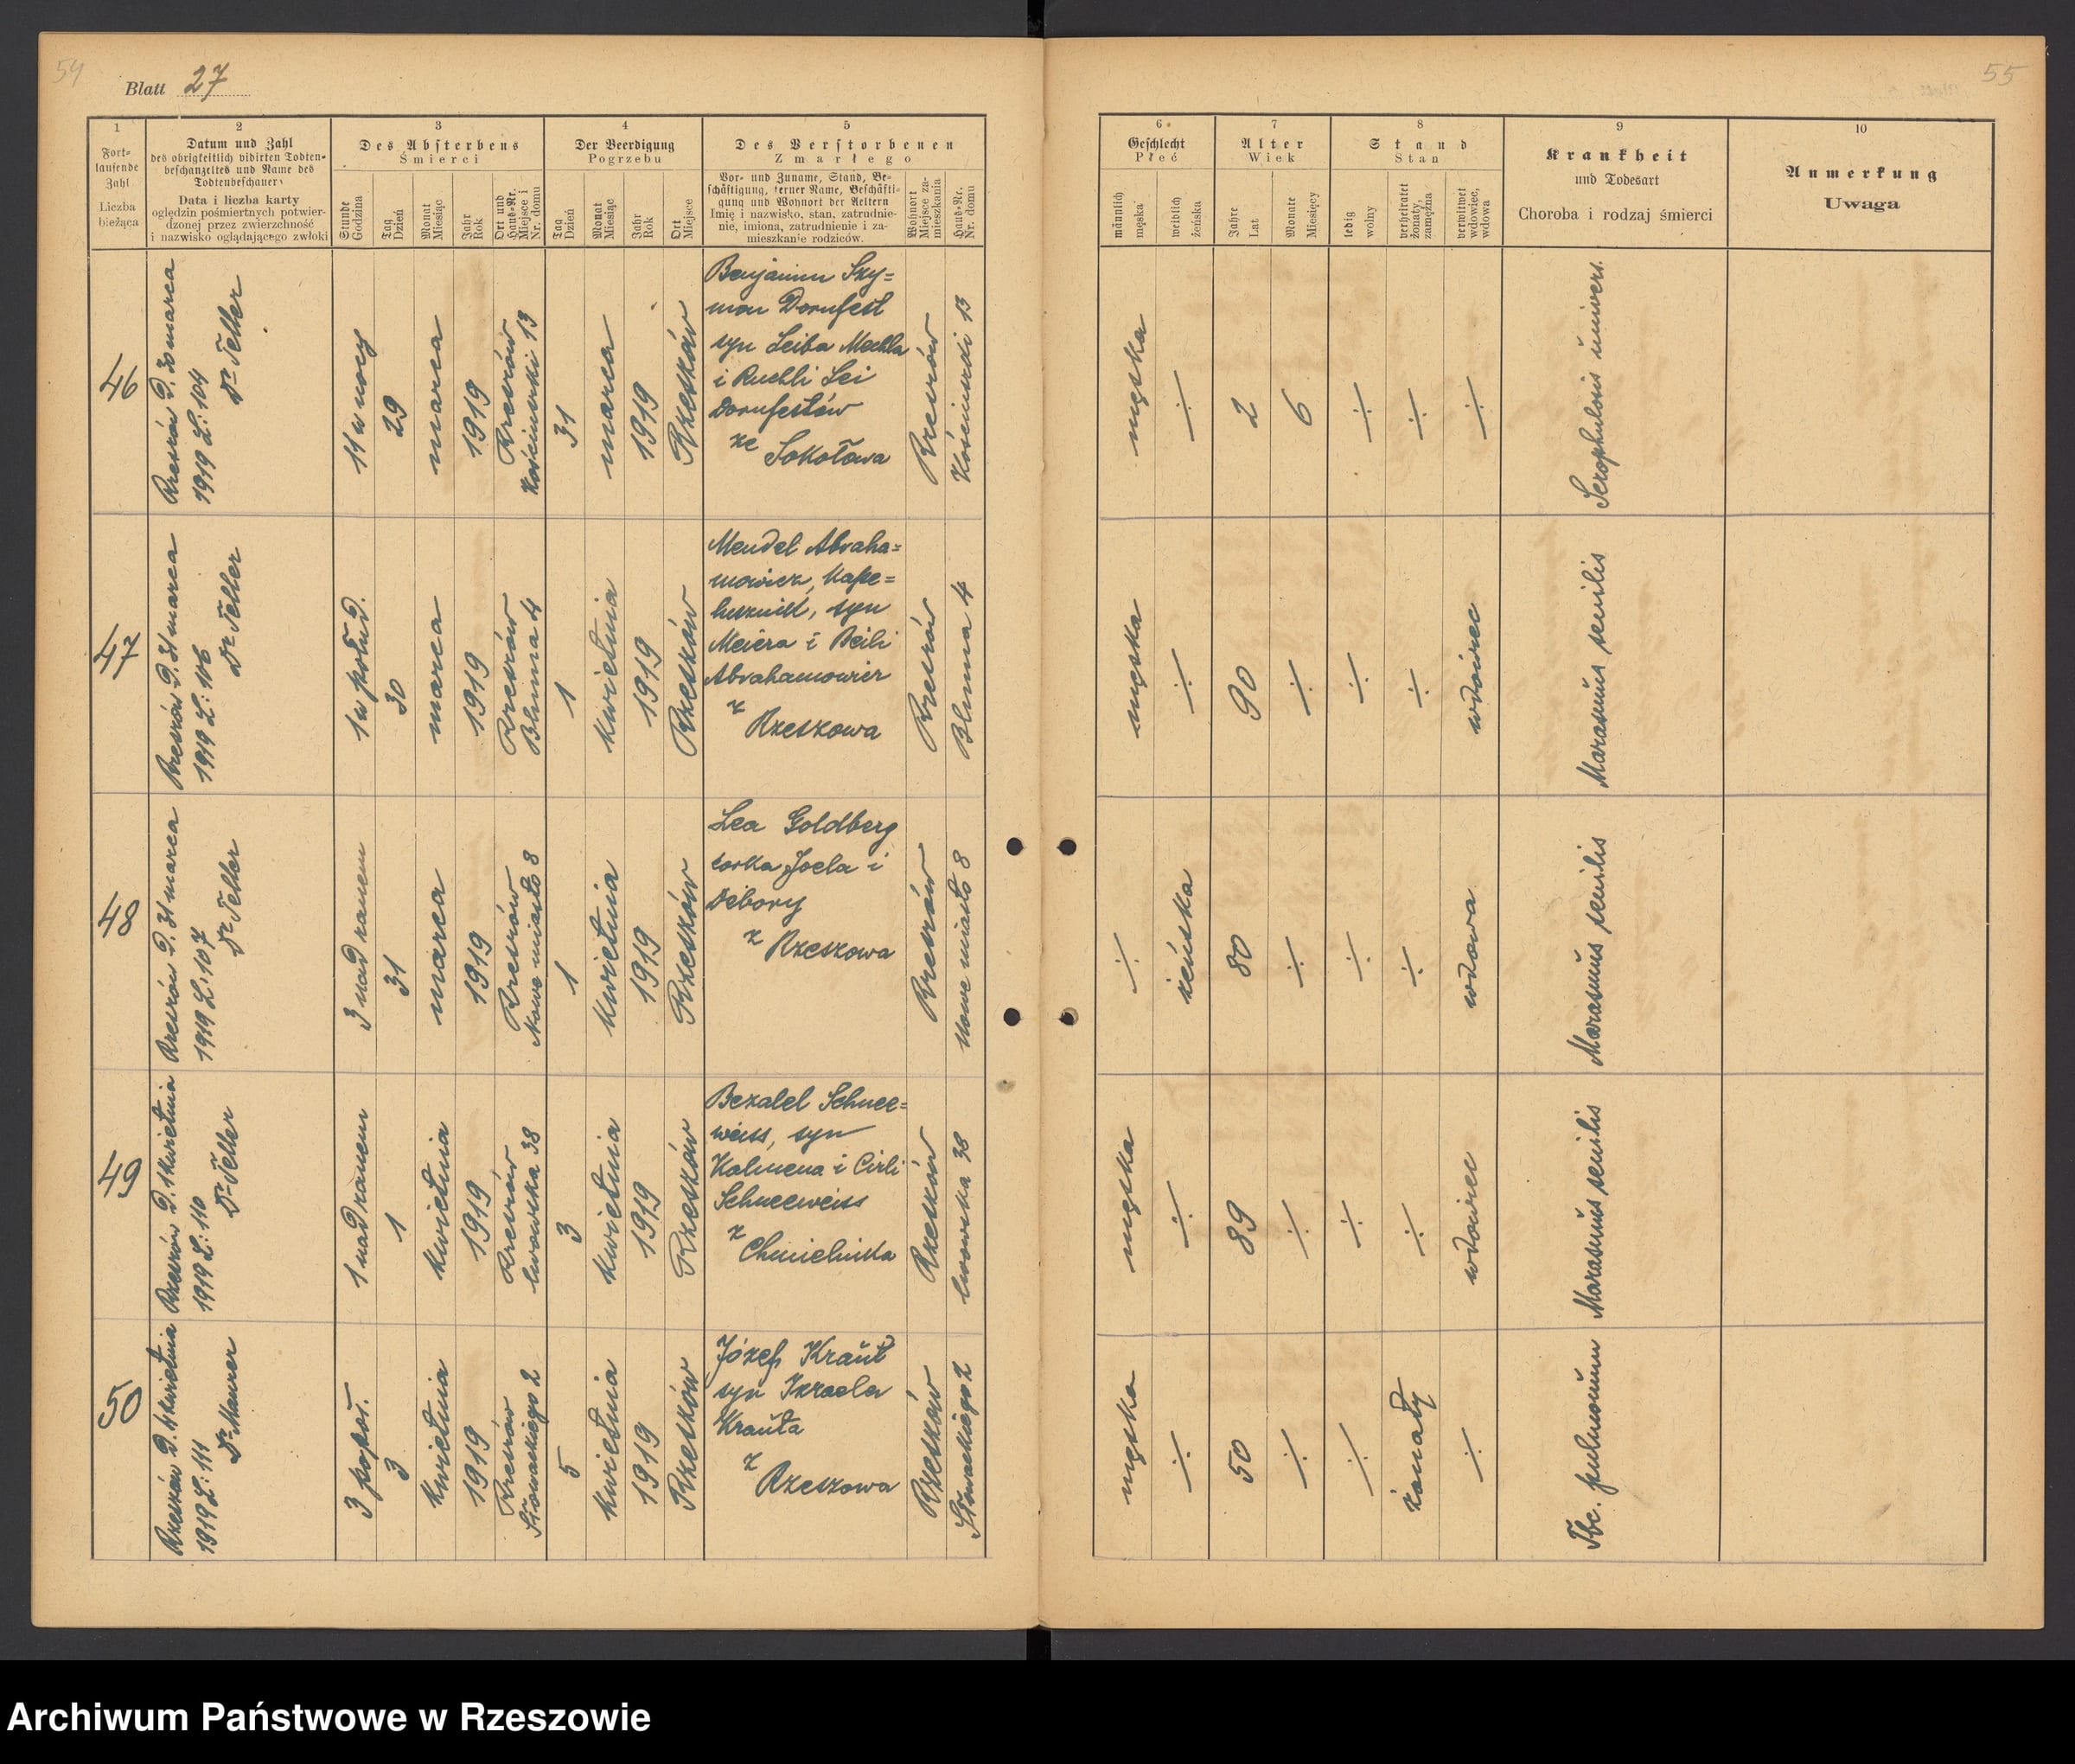 54
Blatt 27
1
Fort-
laufende
Zahl
Liczba
bieżąca
2
Datum und Zahl
des obrigkeitlich vidirten Todten-
beschauzettels und Name des
Todtenbeschauers
Data i liczba karty
oględzin pośmiertnych potwier-
dzonej przez zwierzchność
i nazwisko oglądającego zwłoki
3
Des Absterbens
Śmierci
Stunde
Godzina
Tag
Dzień
Monat
Miesiąc
Jahr
Rok
Ort und
Haus-Nr.
Miejsce i
Nr. domu
4
Der Beerdigung
Pogrzebu
Tag
Dzień
Monat
Miesiąc
Jahr
Rok
Ort
Miejsce
5
Des Verstorbenen
Zmarłego
Vor- und Zuname, Stand, Be-
schäftigung, ferner Name, Beschäfti-
gung und Wohnort der Aeltern
Imię i nazwisko, stan, zatrudnie-
nie, imiona, zatrudnienie i za-
mieszkanie rodziców.
Wohnort
Miejsce za-
mieszkania
Haus-Nr.
Nr. domu
46
Rzeszów d. 30 marca
1919 L: 104
Dr Teller
11 w nocy
29
marca
1919
Rzeszów
Kościuszki 13
31
marca
1919
Rzeszów
Benjamin Szy=
mon Dornfest
syn Leiba Mechla
i Ruchli Lei
Dornfestów
ze
Sokołowa
Rzeszów
Kościuszki 13
47
Rzeszów d. 31 marca
1919 L: 106
Dr Teller
1 w połud.
30
marca
1919
Rzeszów
Blumma 4
1
kwietnia
1919
Rzeszów
Mendel Abraha=
mowicz, kape=
lusznik, syn
Meiera i Beili
Abrahamowicz
z
Rzeszowa
Rzeszów
Blumma 4
48
Rzeszów d. 31 marca
1919 L: 107
Dr Teller
3 nad ranem
31
marca
1919
Rzeszów
Nowe miasto 8
1
kwietnia
1919
Rzeszów
Lea Goldberg
córka Joela i
Debory
z
Rzeszowa
Rzeszów
Nowe miasto 8
49
Rzeszów d. 1 kwietnia
1919 L: 110
Dr Teller
1 nad ranem
1
kwietnia
1919
Rzeszów
lwowska 38
3
kwietnia
1919
Rzeszów
Bezalel Schnee=
weiss, syn
Kalmena i Cirli
Schneeweiss
z
Chmielnika
Rzeszów
lwowska 38
50
Rzeszów d. 4 kwietnia
1919 L: 111
Dr Maurer
3 popoł.
3
kwietnia
1919
Rzeszów
Słowackiego 2
5
kwietnia
1919
Rzeszów
Józef Kraut
syn Izraela
Krauta
z
Rzeszowa
Rzeszów
Słowackiego 2
55
6
Geschlecht
Płeć
männlich
męska
weiblich
żeńska
7
Alter
Wiek
Jahre
Lat
Monate
Miesięcy
8
Stand
Stan
ledig
wolny
verheiratet
żonaty,
zamężna
verwitwet
wdowiec,
wdowa
9
Krankheit
und Todesart
Choroba i rodzaj śmierci
10
Anmerkung
Uwaga
męska
÷
2
6
÷
÷
÷
Scrophulosis univers.
męska
÷
90
÷
÷
÷
wdowiec
Marasmus senilis
÷
żeńska
80
÷
÷
÷
wdowa
Marasmus senilis
męska
÷
89
÷
÷
÷
wdowiec
Marasmus senilis
męska
÷
50
÷
÷
żonaty
÷
Tbc. pulmonum
Archiwum Państwowe w Rzeszowie